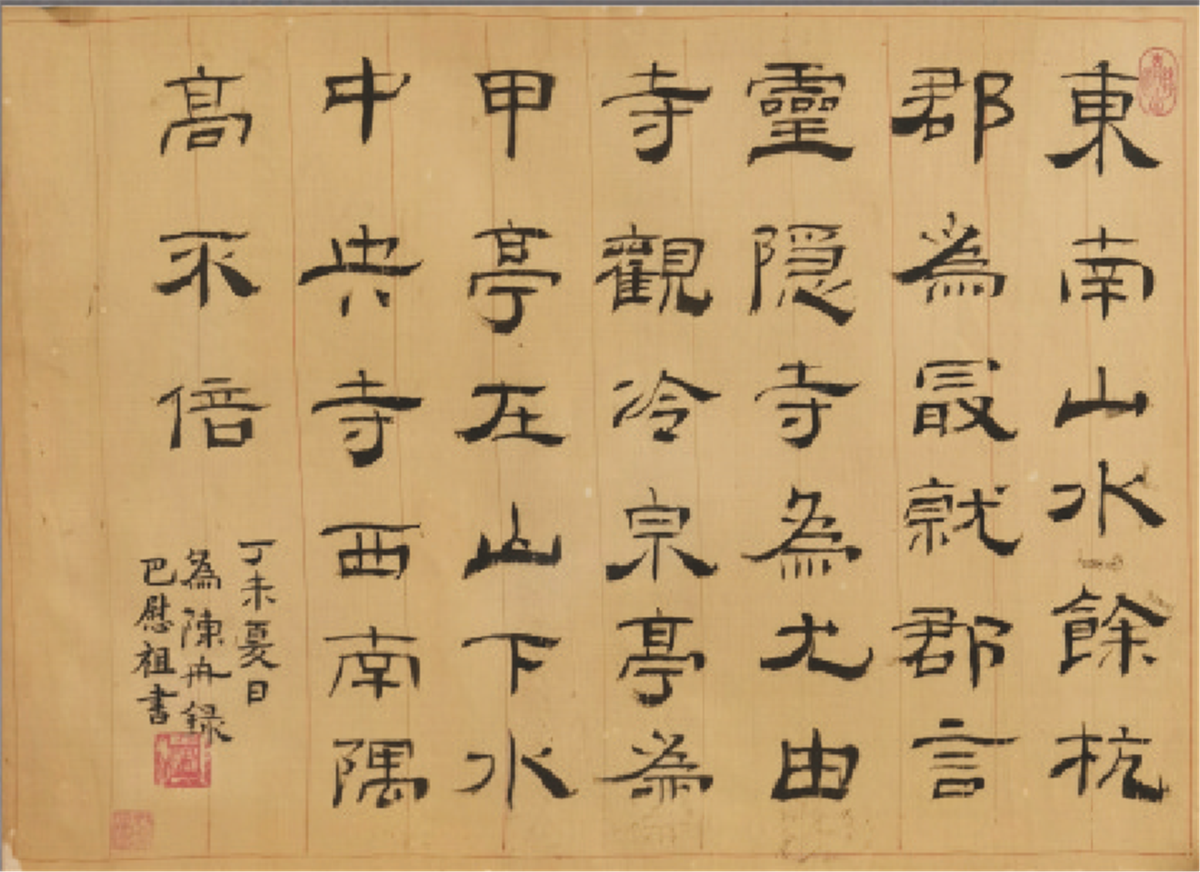 東南山水餘杭
郡為最就郡言
靈隱寺為尤由
寺觀冷泉亭為
甲亭在山下水
中央寺西南隅
高不倍
丁未夏日
為陳録
巴慰祖書